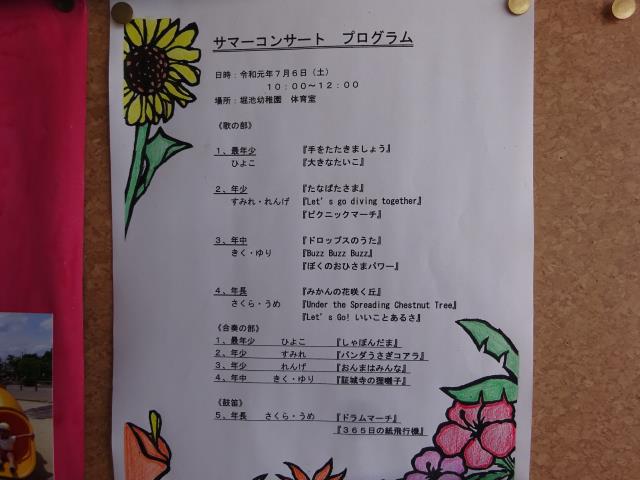 サマーコンサート　プログラム
日時：令和元年７月６日（土）
１０：００～１２：００
場所：堀池幼稚園　体育室
《歌の部》
１、最年少　『手をたたきましょう』
ひよこ　『大きなたいこ』
２、年少　『たなばたさま』
すみれ・れんげ　『Let's go diving together』
『ピクニックマーチ』
３、年中　『ドロップスのうた』
きく・ゆり　『Buzz Buzz Buzz』
『ぼくのおひさまパワー』
４、年長　『みかんの花咲く丘』
さくら・うめ　『Under the Spreading Chestnut Tree』
『Let's Go! いいことあるさ』
《合奏の部》
１、最年少　ひよこ　『しゃぼんだま』
２、年少　すみれ　『パンダうさぎコアラ』
３、年少　れんげ　『おんまはみんな』
４、年中　きく・ゆり　『証城寺の狸囃子』
《鼓笛》
５、年長　さくら・うめ　『ドラムマーチ』
『３６５日の紙飛行機』